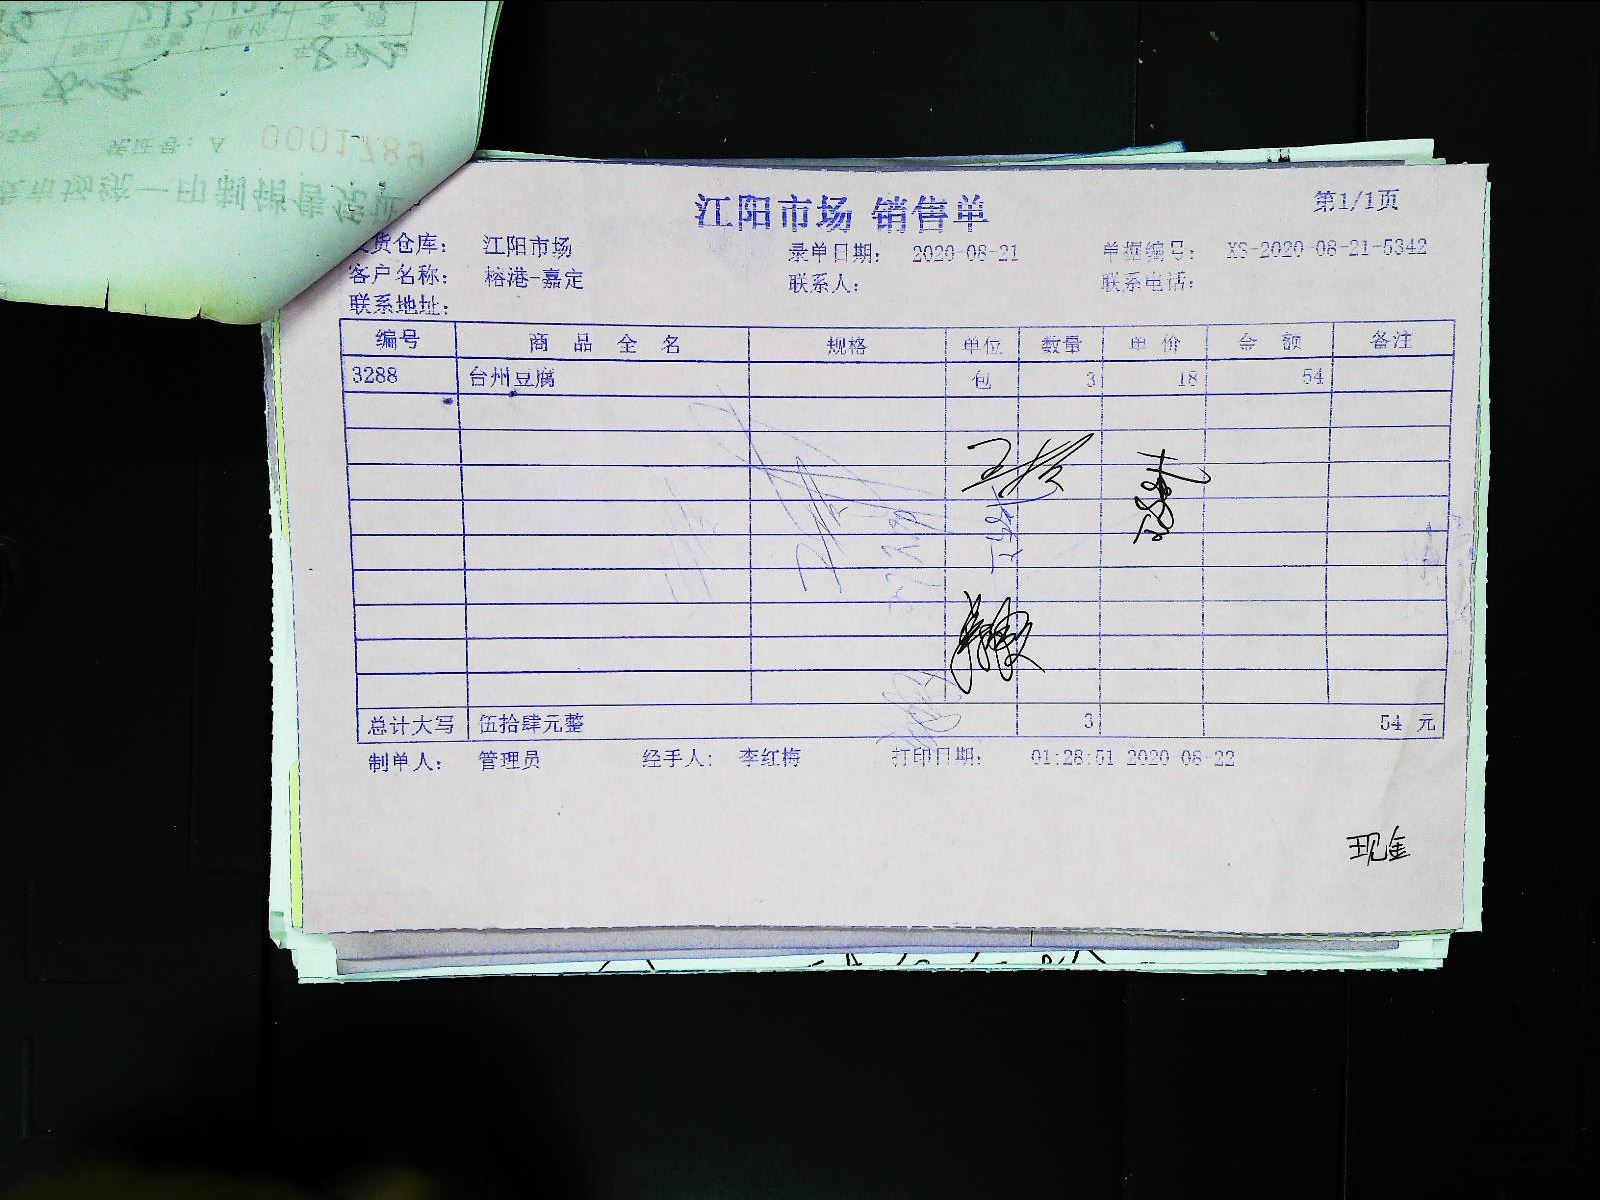 0001789
江阳市场 销售单
第1/1页
货仓库： 江阳市场 录单日期： 2020-08-21 单据编号： XS-2020-08-21-5342
客户名称： 榕港-嘉定 联系人： 联系电话：
联系地址：
编号 商品全名 规格 单位 数量 单价 金额 备注
3288 台州豆腐 包 3 18 54
总计大写 伍拾肆元整 3 54 元
制单人： 管理员 经手人： 李红梅 打印日期： 01:28:51 2020-08-22
现金